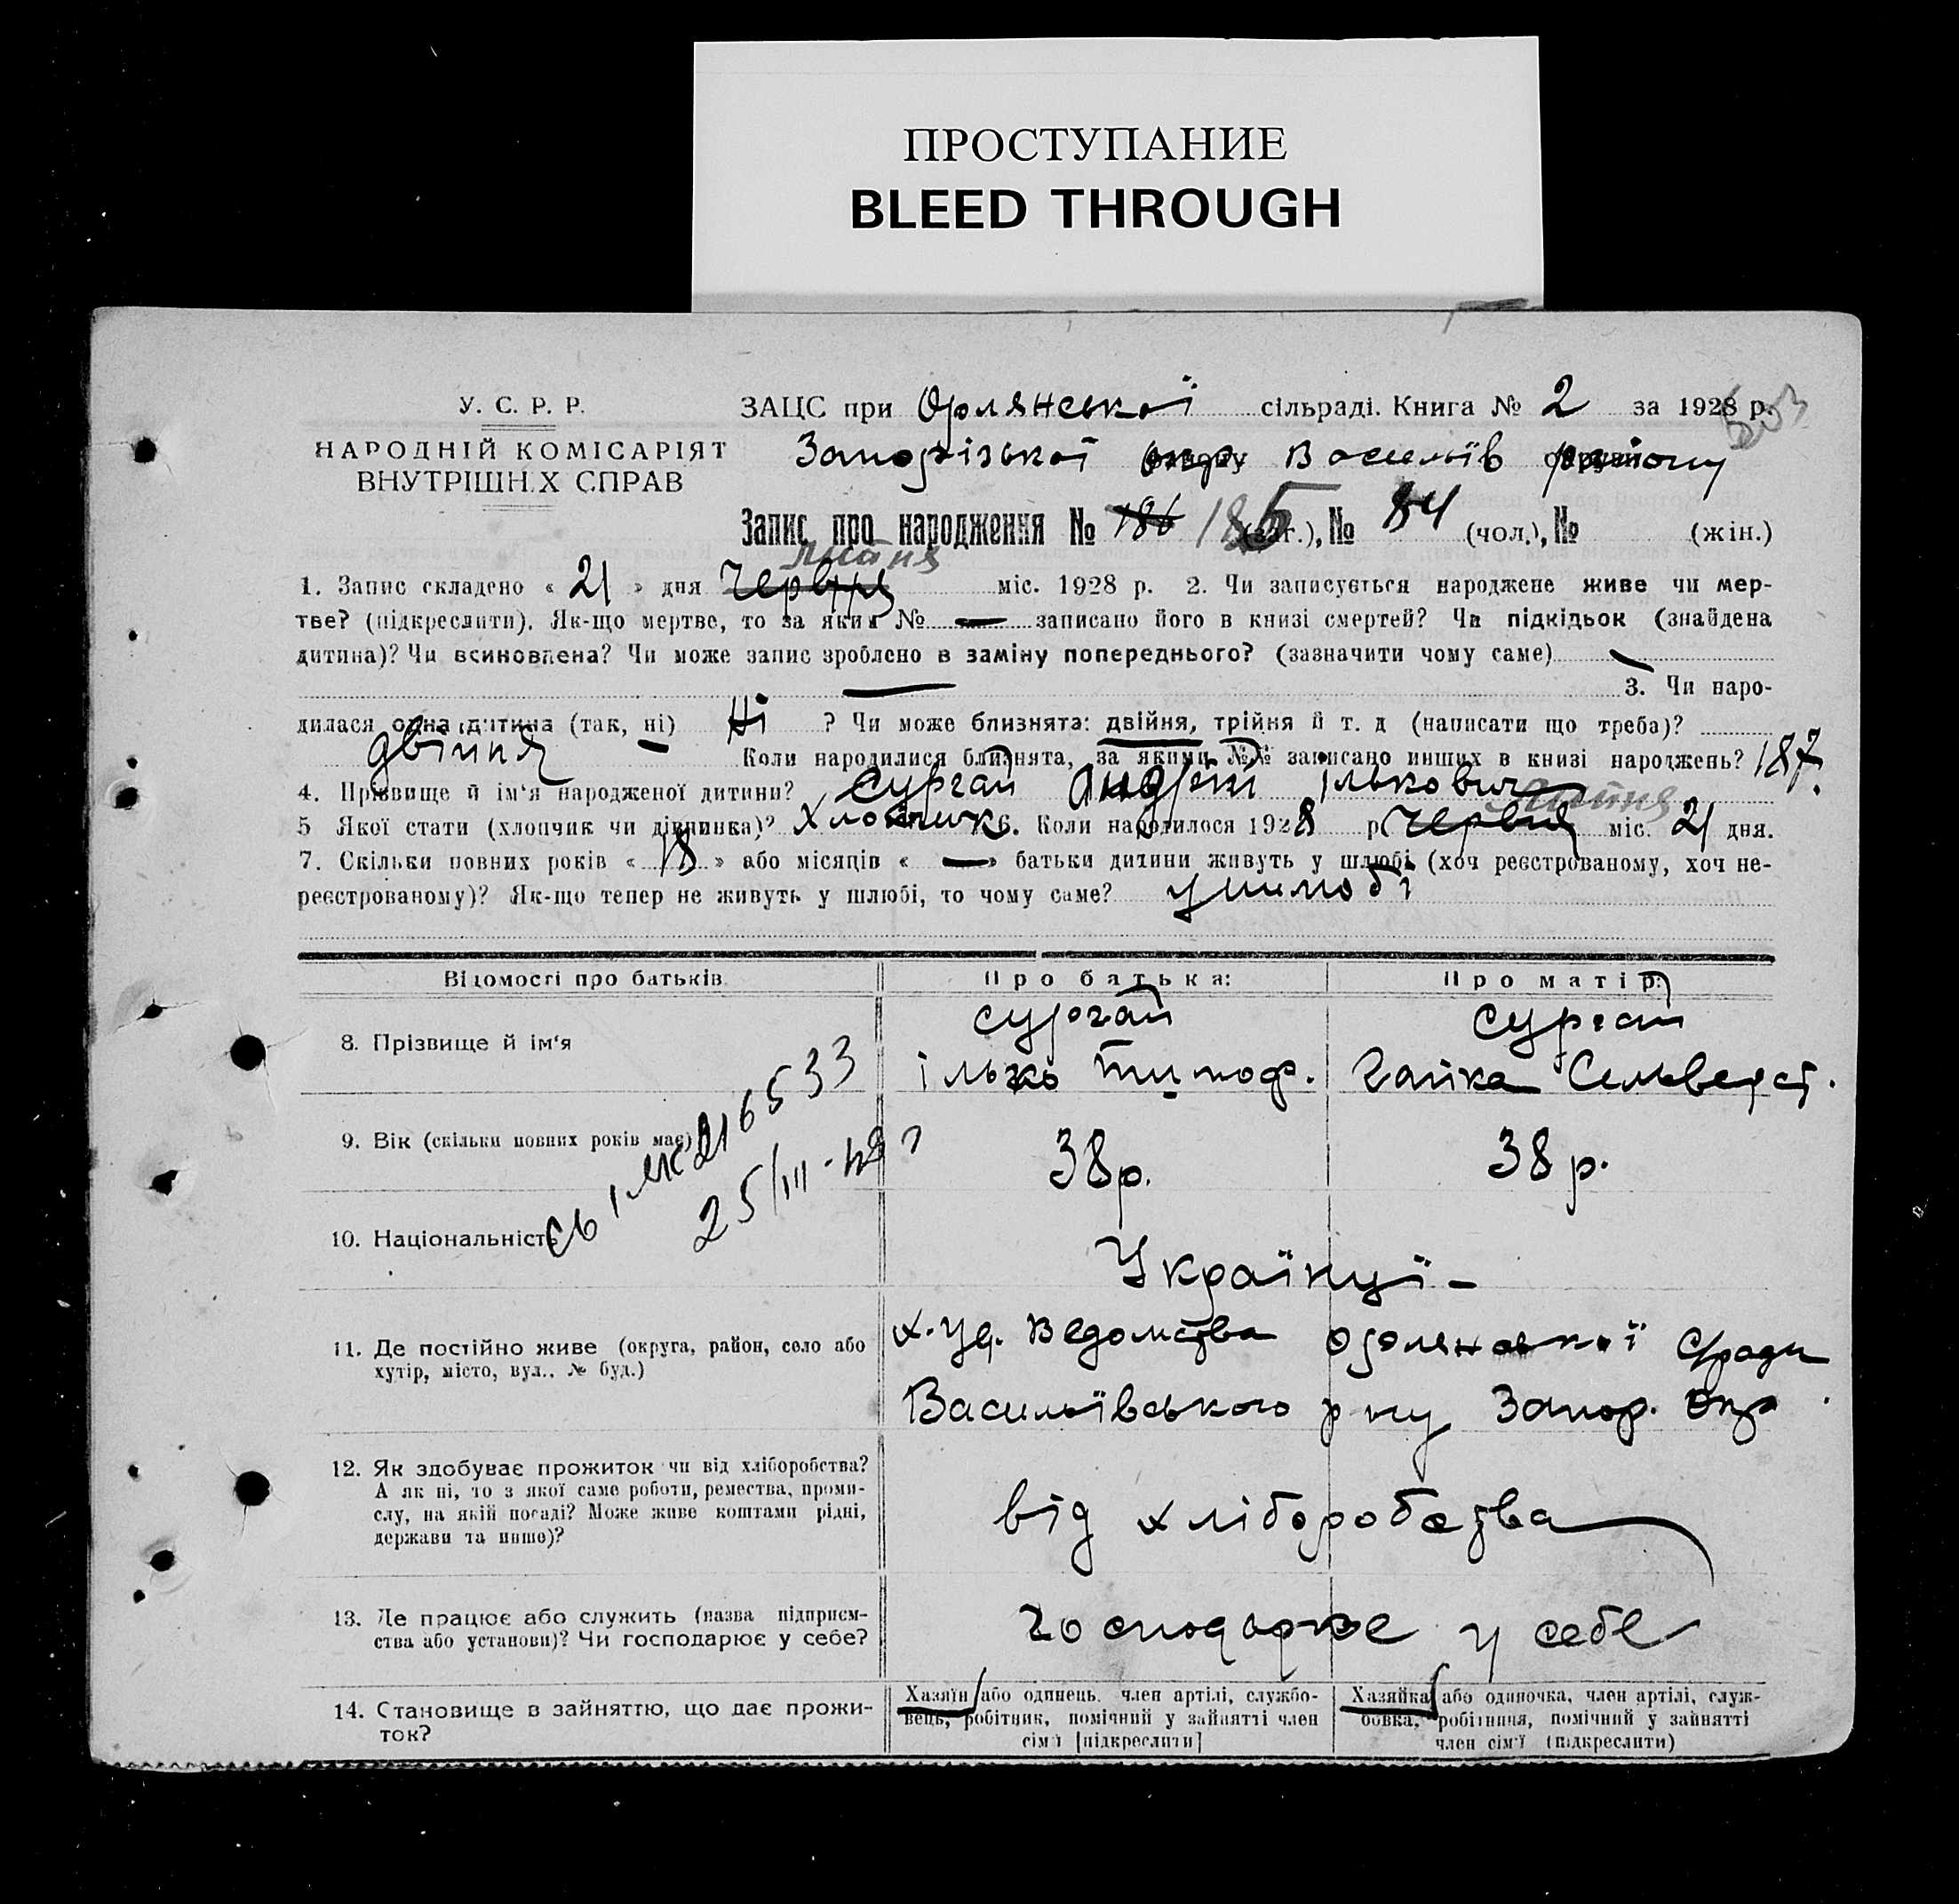 ПРОСТУПАНИЕ
BLEED THROUGH
У. С. Р. Р.
НАРОДНІЙ КОМІСАРІЯТ
ВНУТРІШНІХ СПРАВ
ЗАЦС при Орлянської сільраді. Книга № 2 за 1928 р.
Запорізької окр. Василів району
Запис про народження № 186 185 (заг.), № 84 (чол.), № (жін.)
липня
1. Запис складено « 21 » дня Червня міс. 1928 р. 2. Чи записується народжене живе чи мер-
тве? (підкреслити). Як-що мертве, то за яким № — записано його в книзі смертей? Чи підкідьок (знайдена
дитина)? Чи всиновлена? Чи може запис зроблено в заміну попереднього? (зазначити чому саме) —
— 3. Чи наро-
дилася одна дитина (так, ні) Ні ? Чи може близнята: двійня, трійня й т. д (написати що треба)?
двійня Коли народилися близнята, за якими №№ записано инших в книзі народжень? 187.
4. Прізвище й ім'я народженої дитини? Сургай Андрій Ількович
липня
5 Якої стати (хлопчик чи дівчинка)? Хлопчик 6. Коли народилося 1928 р. Червня міс. 21 дня.
7. Скільки повних років « 18 » або місяців « — » батьки дитини живуть у шлюбі (хоч реєстрованому, хоч не-
реєстрованому)? Як-що тепер не живуть у шлюбі, то чому саме? у шлюбі
Відомості про батьків
Про батька:
Про матір:
8. Прізвище й ім'я
Сургай
Ілько Тимоф.
Сургай
Галька Сельверст.
9. Вік (скільки повних років має)
38 р.
38 р.
216533
25/III-49
10. Національність
Українці -
11. Де постійно живе (округа, район, село або
хутір, місто, вул.. № буд.)
Ведомства Орлянської с/ради
Васильївського р ну Запор. Окр.
12. Як здобуває прожиток чи від хліборобства?
А як ні, то з якої саме роботи, ремества, проми-
слу, на якій посаді? Може живе коштами рідні,
держави та инше)?
від хліборобства
13. Де працює або служить (назва підприєм-
ства або установи)? Чи господарює у себе?
господарює у себе
14. Становище в зайняттю, що дає прожи-
ток?
Хазяїн або одинець. член артілі, службо-
вець, робітник, помічний у зайнятті член
сім'ї [підкреслити]
Хазяйка або одиночка, член артілі, служ-
бовка, робітниця, помічний у зайнятті
член сім'ї (підкреслити)